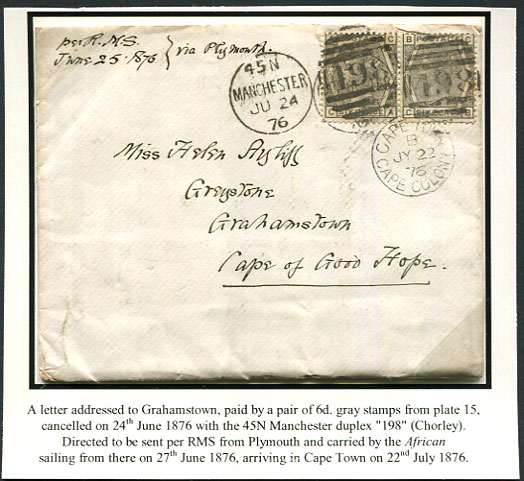 per R.M.S.
June 25 - 1876 } via Plymouth.
45N
MANCHESTER
JU 24
76
198
198
CAPE TOWN
B
JY 22
76
CAPE COLONY
Miss Helen Ayliff
Greystone
Grahamstown
Cape of Good Hope.
A letter addressed to Grahamstown, paid by a pair of 6d. gray stamps from plate 15,
cancelled on 24th June 1876 with the 45N Manchester duplex "198" (Chorley).
Directed to be sent per RMS from Plymouth and carried by the African
sailing from there on 27th June 1876, arriving in Cape Town on 22nd July 1876.